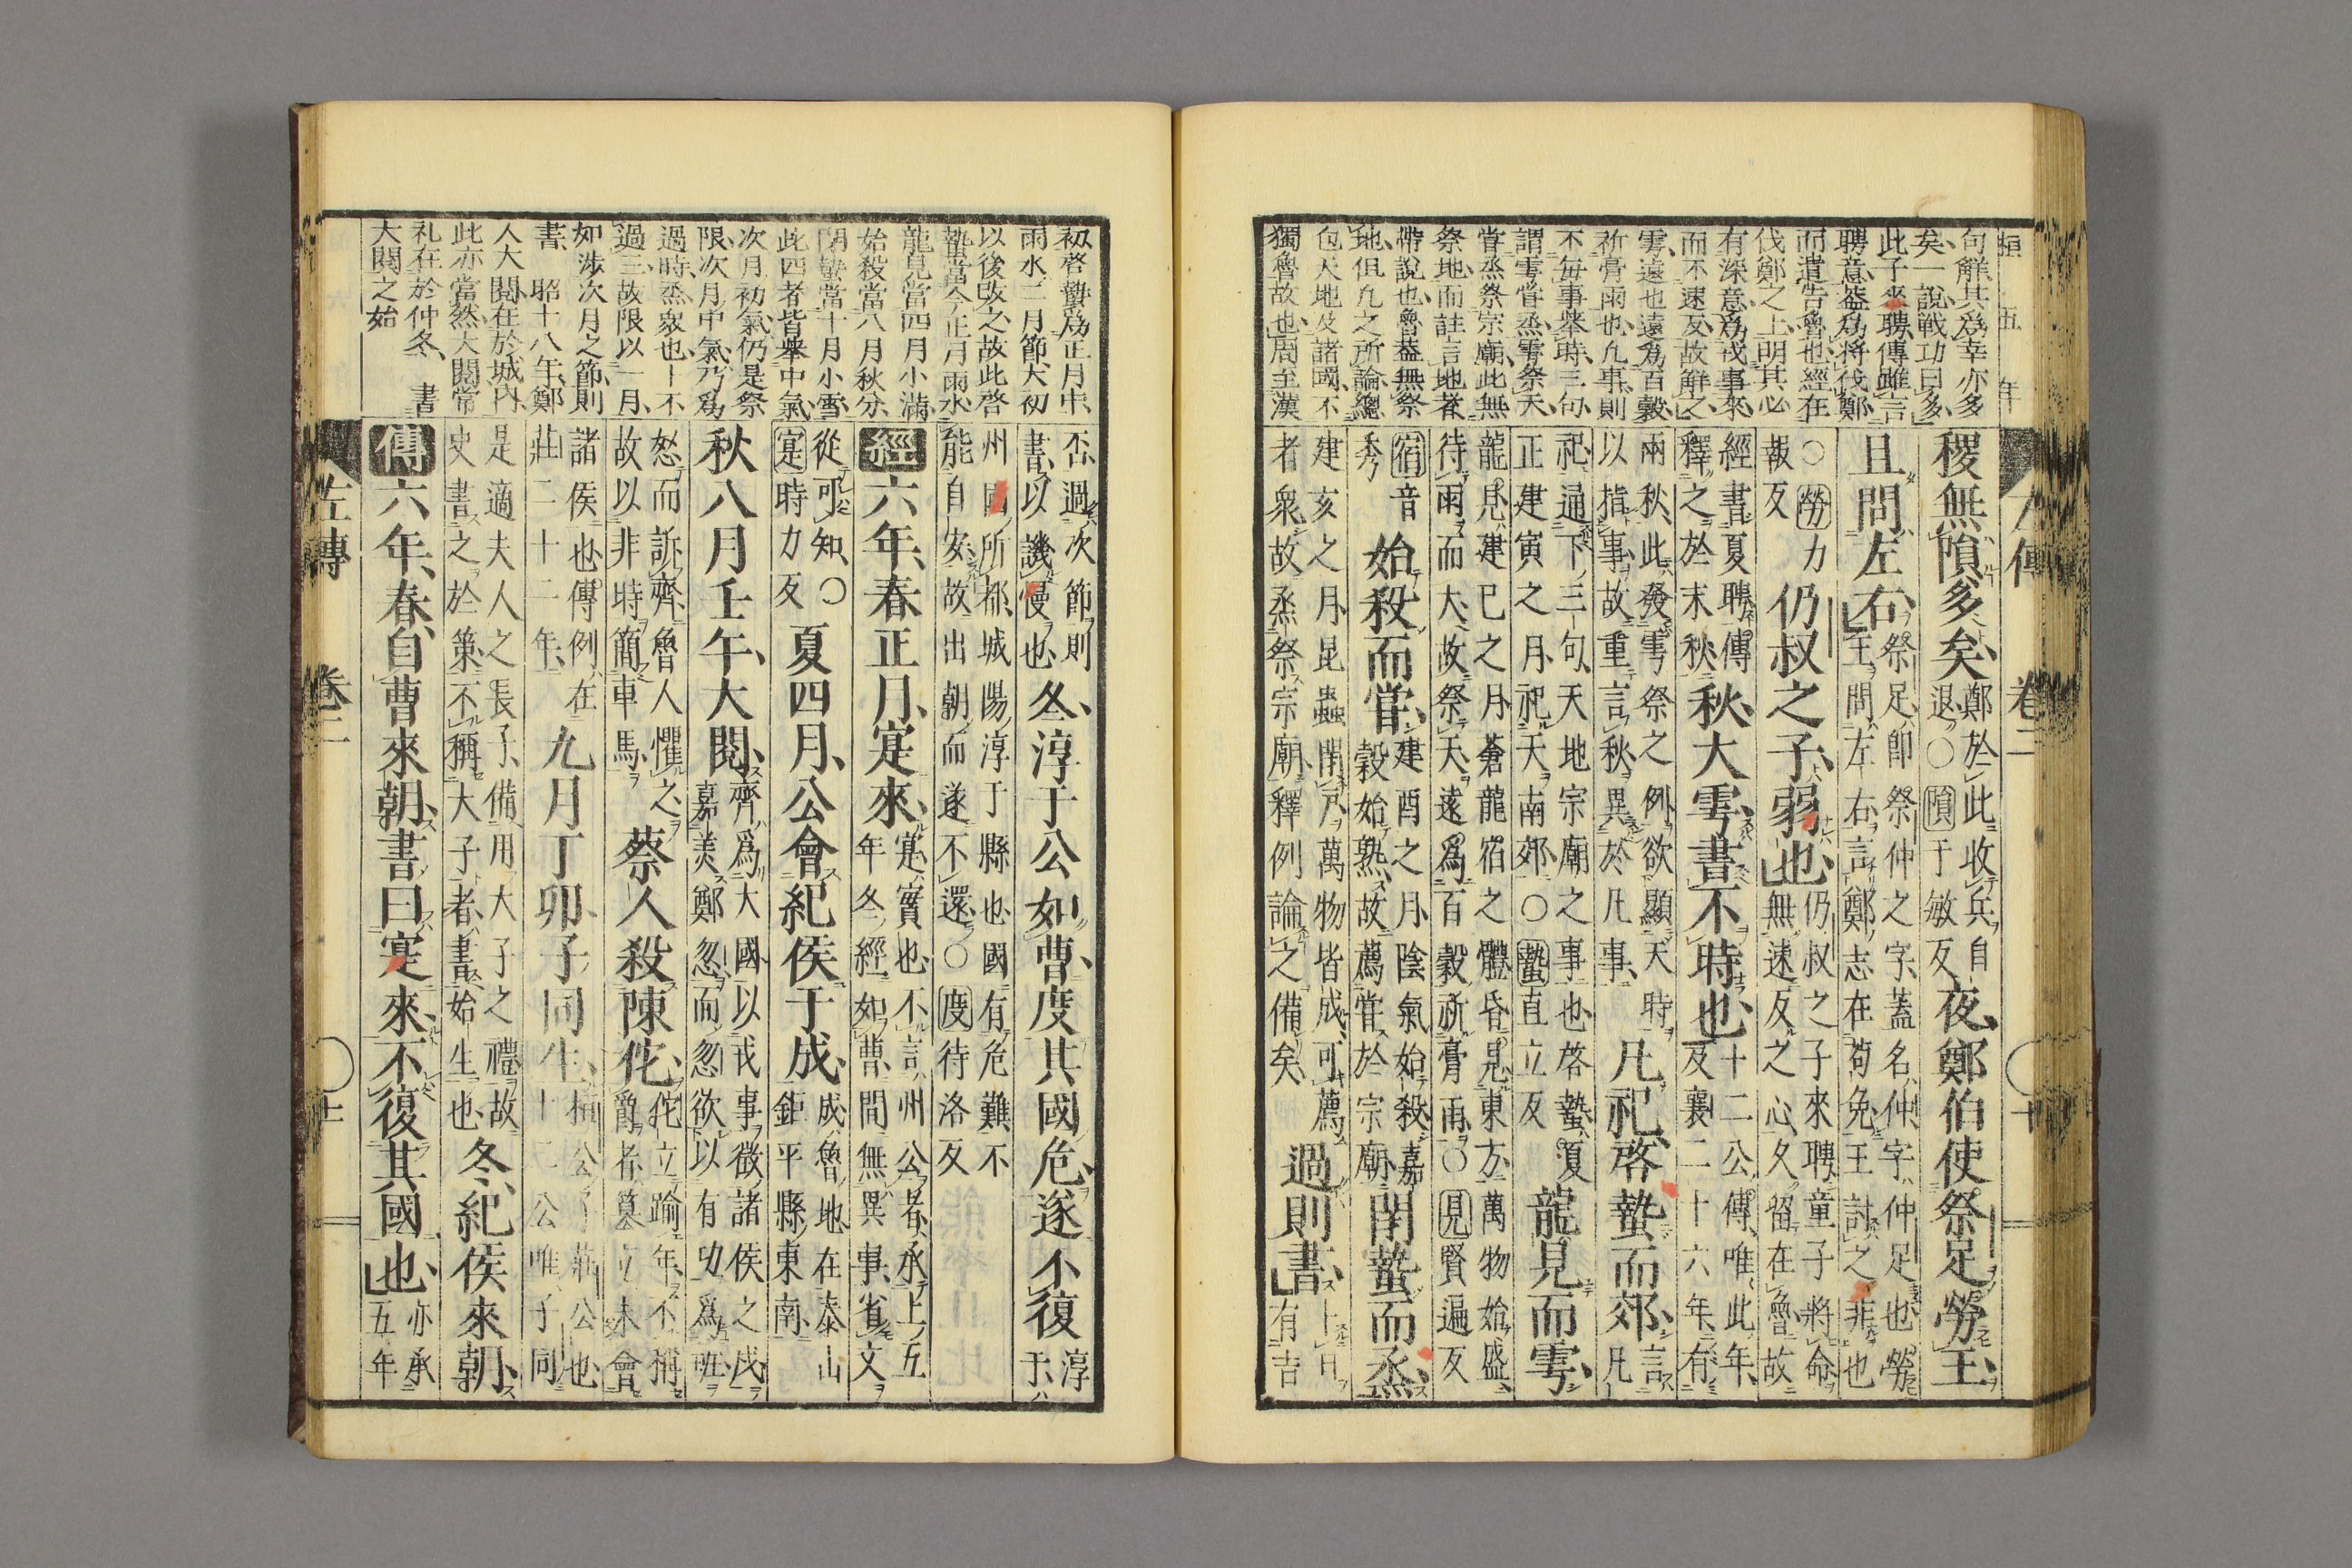 桓 五 年
左傳 卷二 十
句解其爲幸亦多
矣一說戰功曰多
此子來聘傳雖言
聘意葢爲將伐鄭
而遣告魯也經在
伐鄭之上明其必
有深意爲戎事來
而不速反故解之
雩遠也遠爲百穀
祈膏雨也凡事則
不每事举時三句
謂雩嘗烝雩祭天
嘗烝祭宗廟此無
祭地而註言地者
帶說也魯葢無祭
地但凡之所論總
包天地及諸國不
獨魯故也周至漢
稷無隕多矣鄭於此收兵自退○隕于敏反夜鄭伯使祭足勞王
且問左右祭足即祭仲之字蓋名仲字仲足也勞王問左右言鄭志在苟免王討之非也
○勞力報反仍叔之子弱也仍叔之子來聘童子將命無速反之心久留在魯故
經書夏聘傳釋之於末秋秋大雩書不時也十二公傳唯此年及襄二十六年有
兩秋此發雩祭之例欲顯天時以指事故重言秋異於凡事凡祀啓蟄而郊言凡
祀通下三句天地宗廟之事也啓蟄夏正建寅之月祀天南郊○蟄直立反龍見而雩
龍見建巳之月蒼龍宿之體昏見東方萬物始盛待雨而大故祭天遠爲百穀祈膏雨○見賢遍反
宿音秀始殺而嘗建酉之月陰氣始殺嘉穀始熟故薦嘗於宗廟閉蟄而烝
建亥之月昆蟲閉戶萬物皆成可薦者衆故烝祭宗廟釋例論之備矣過則書卜日有吉
初啓蟄爲正月中
雨水二月節大初
以後改之故此啓
蟄當今正月雨水
龍見當四月小滿
始殺當八月秋分
閉蟄當十月小雪
此四者皆舉中氣
次月初氣仍是祭
限次月中氣乃爲
過時烝衆也一不
過三故限以一月
如涉次月之節則
書 昭十八年鄭
人大閱在於城內
此亦當然大閱常
礼在於仲冬 書
大閱之始
否過次節則書以譏慢也冬淳于公如曹度其國危遂不復淳于
州國所都城陽淳于縣也國有危難不能自安故出朝而遂不還○度待洛反
經六年春正月寔來寔實也不言州公者承上五年冬經如曹間無異事省文
從可知○寔時力反夏四月公會紀侯于成成魯地在泰山鉅平縣東南
秋八月壬午大閱齊爲大國以戎事徵諸侯之戍嘉美鄭忽而忽欲以有功爲班
怒而訴齊魯人懼之故以非時簡車馬蔡人殺陳佗佗立踰年不稱爵者篡立未會
諸侯也傳例在莊二十二年九月丁卯子同生桓公子莊公也十二公唯子同
是適夫人之長子備用大子之禮故史書之於策不稱大子者書始生也冬紀侯來朝
傳六年春自曹來朝書曰寔來不復其國也亦承五年
左傳 卷二